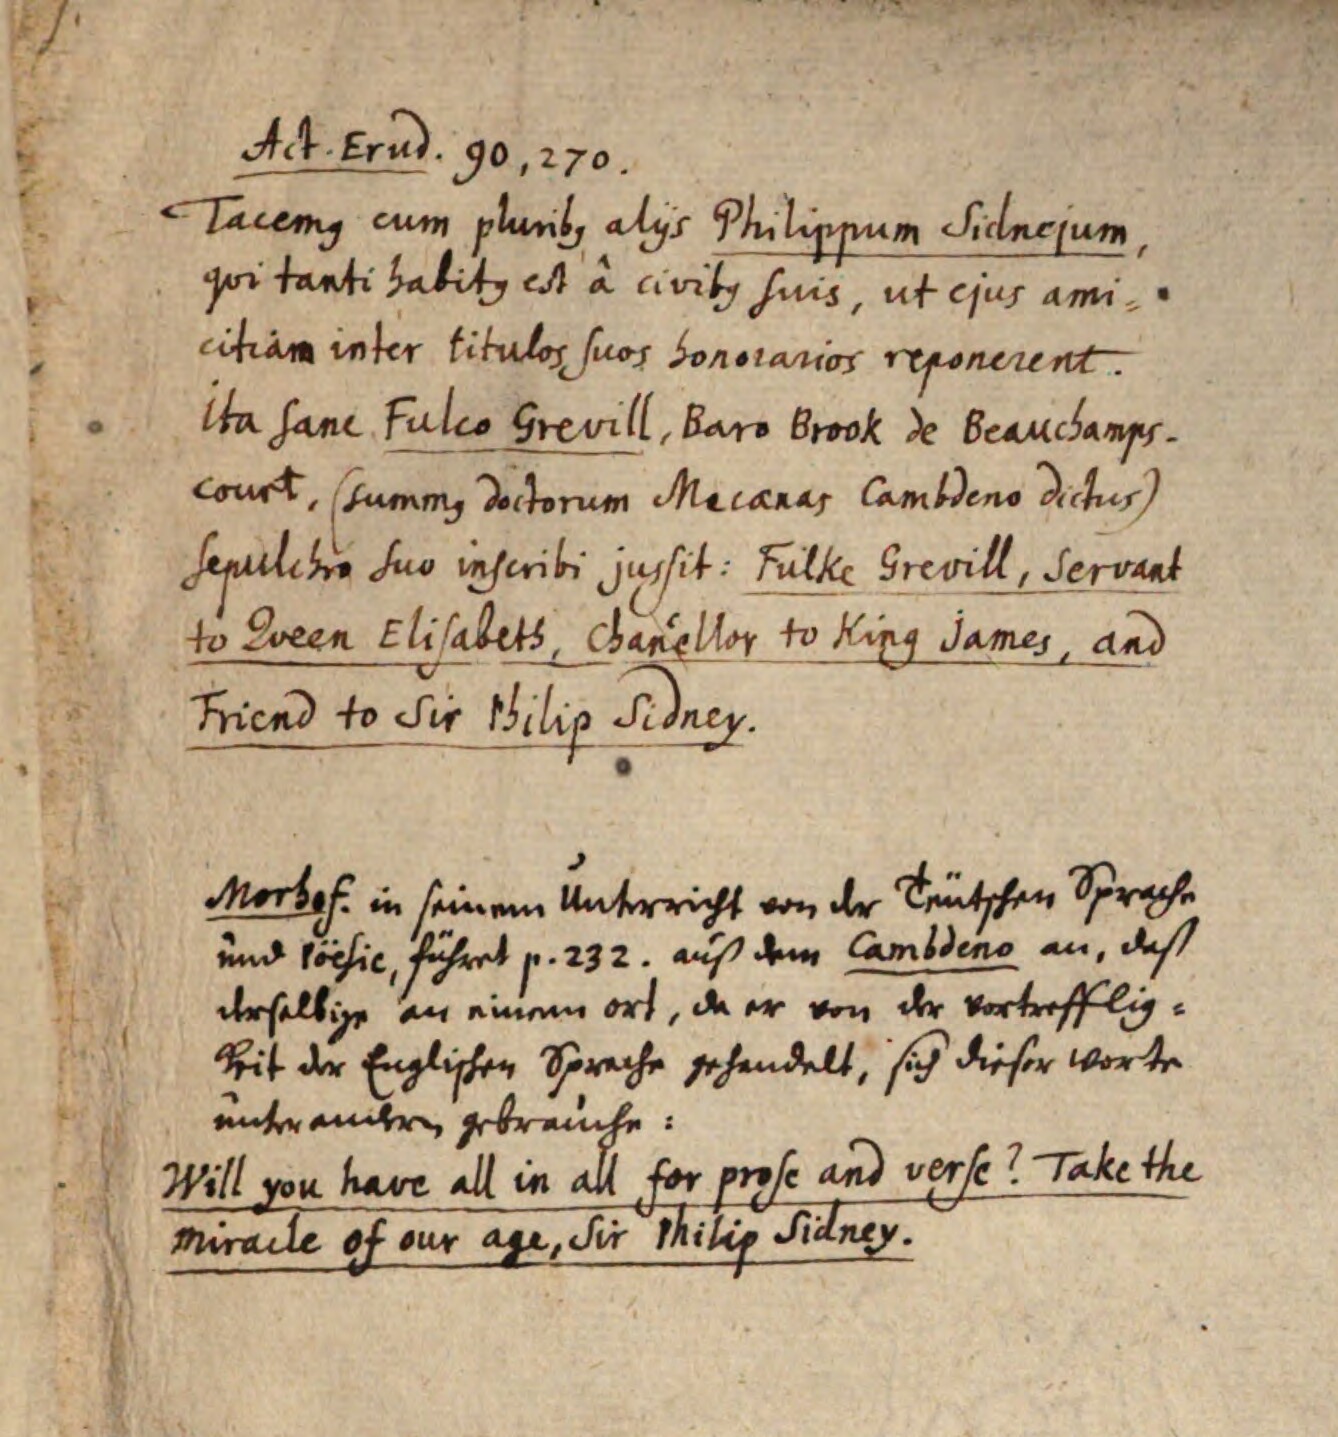 Act. Erud. 90, 270.
Tacemꝰ cum pluribꝰ alijs Philippum Sidnejum,
qvi tanti habitꝰ est â civibꝰ suis, ut ejus ami=
citiam inter titulos suos honorarios reponerent.
Ita sane Fulco Grevill, Baro Brook de Beauchamps-
court, (summꝰ doctorum Mecænas Cambdeno dictus)
sepulchro suo inscribi jussit: Fulke Grevill, Servant
to Qveen Elisabeth, Chancellor to King James, and
Friend to Sir Philip Sidney.
Morhof. in seinem Unterricht von der Teütschen Sprache
und Pöesie, führet p. 232. auß dem Cambdeno an, daß
derselbige an einem ort, da er von der vortrefflig=
keit der Englischen Sprache gehandelt, sich dieser worte
unter andern gebrauche:
Will you have all in all for prose and verse? Take the
miracle of our age, Sir Philip Sidney.